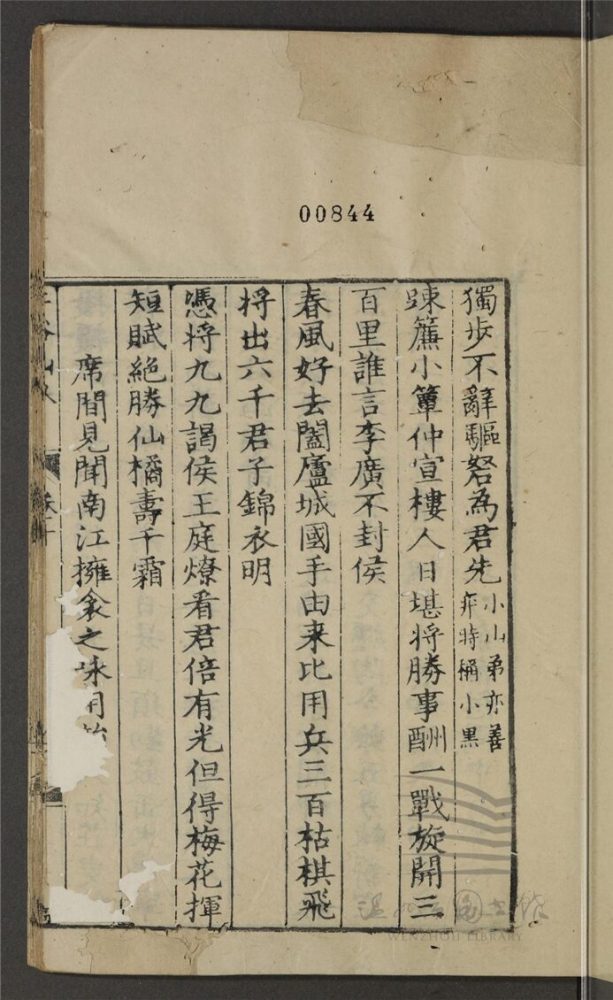 00844
獨步不辭驅弩為君先小山弟亦善
弈時稱小黑
踈簾小簟仲宣樓人日堪將勝事酬一戰旋開三
百里誰言李廣不封侯
春風好去闔廬城國手由来比用兵三百枯棋飛
将出六千君子錦衣明
憑将九九謁侯王庭燎看君倍有光但得梅花揮
短賦絶勝仙橘壽千霜
席間見聞南江擁衾之咏用
WENZHOU LIBRARY